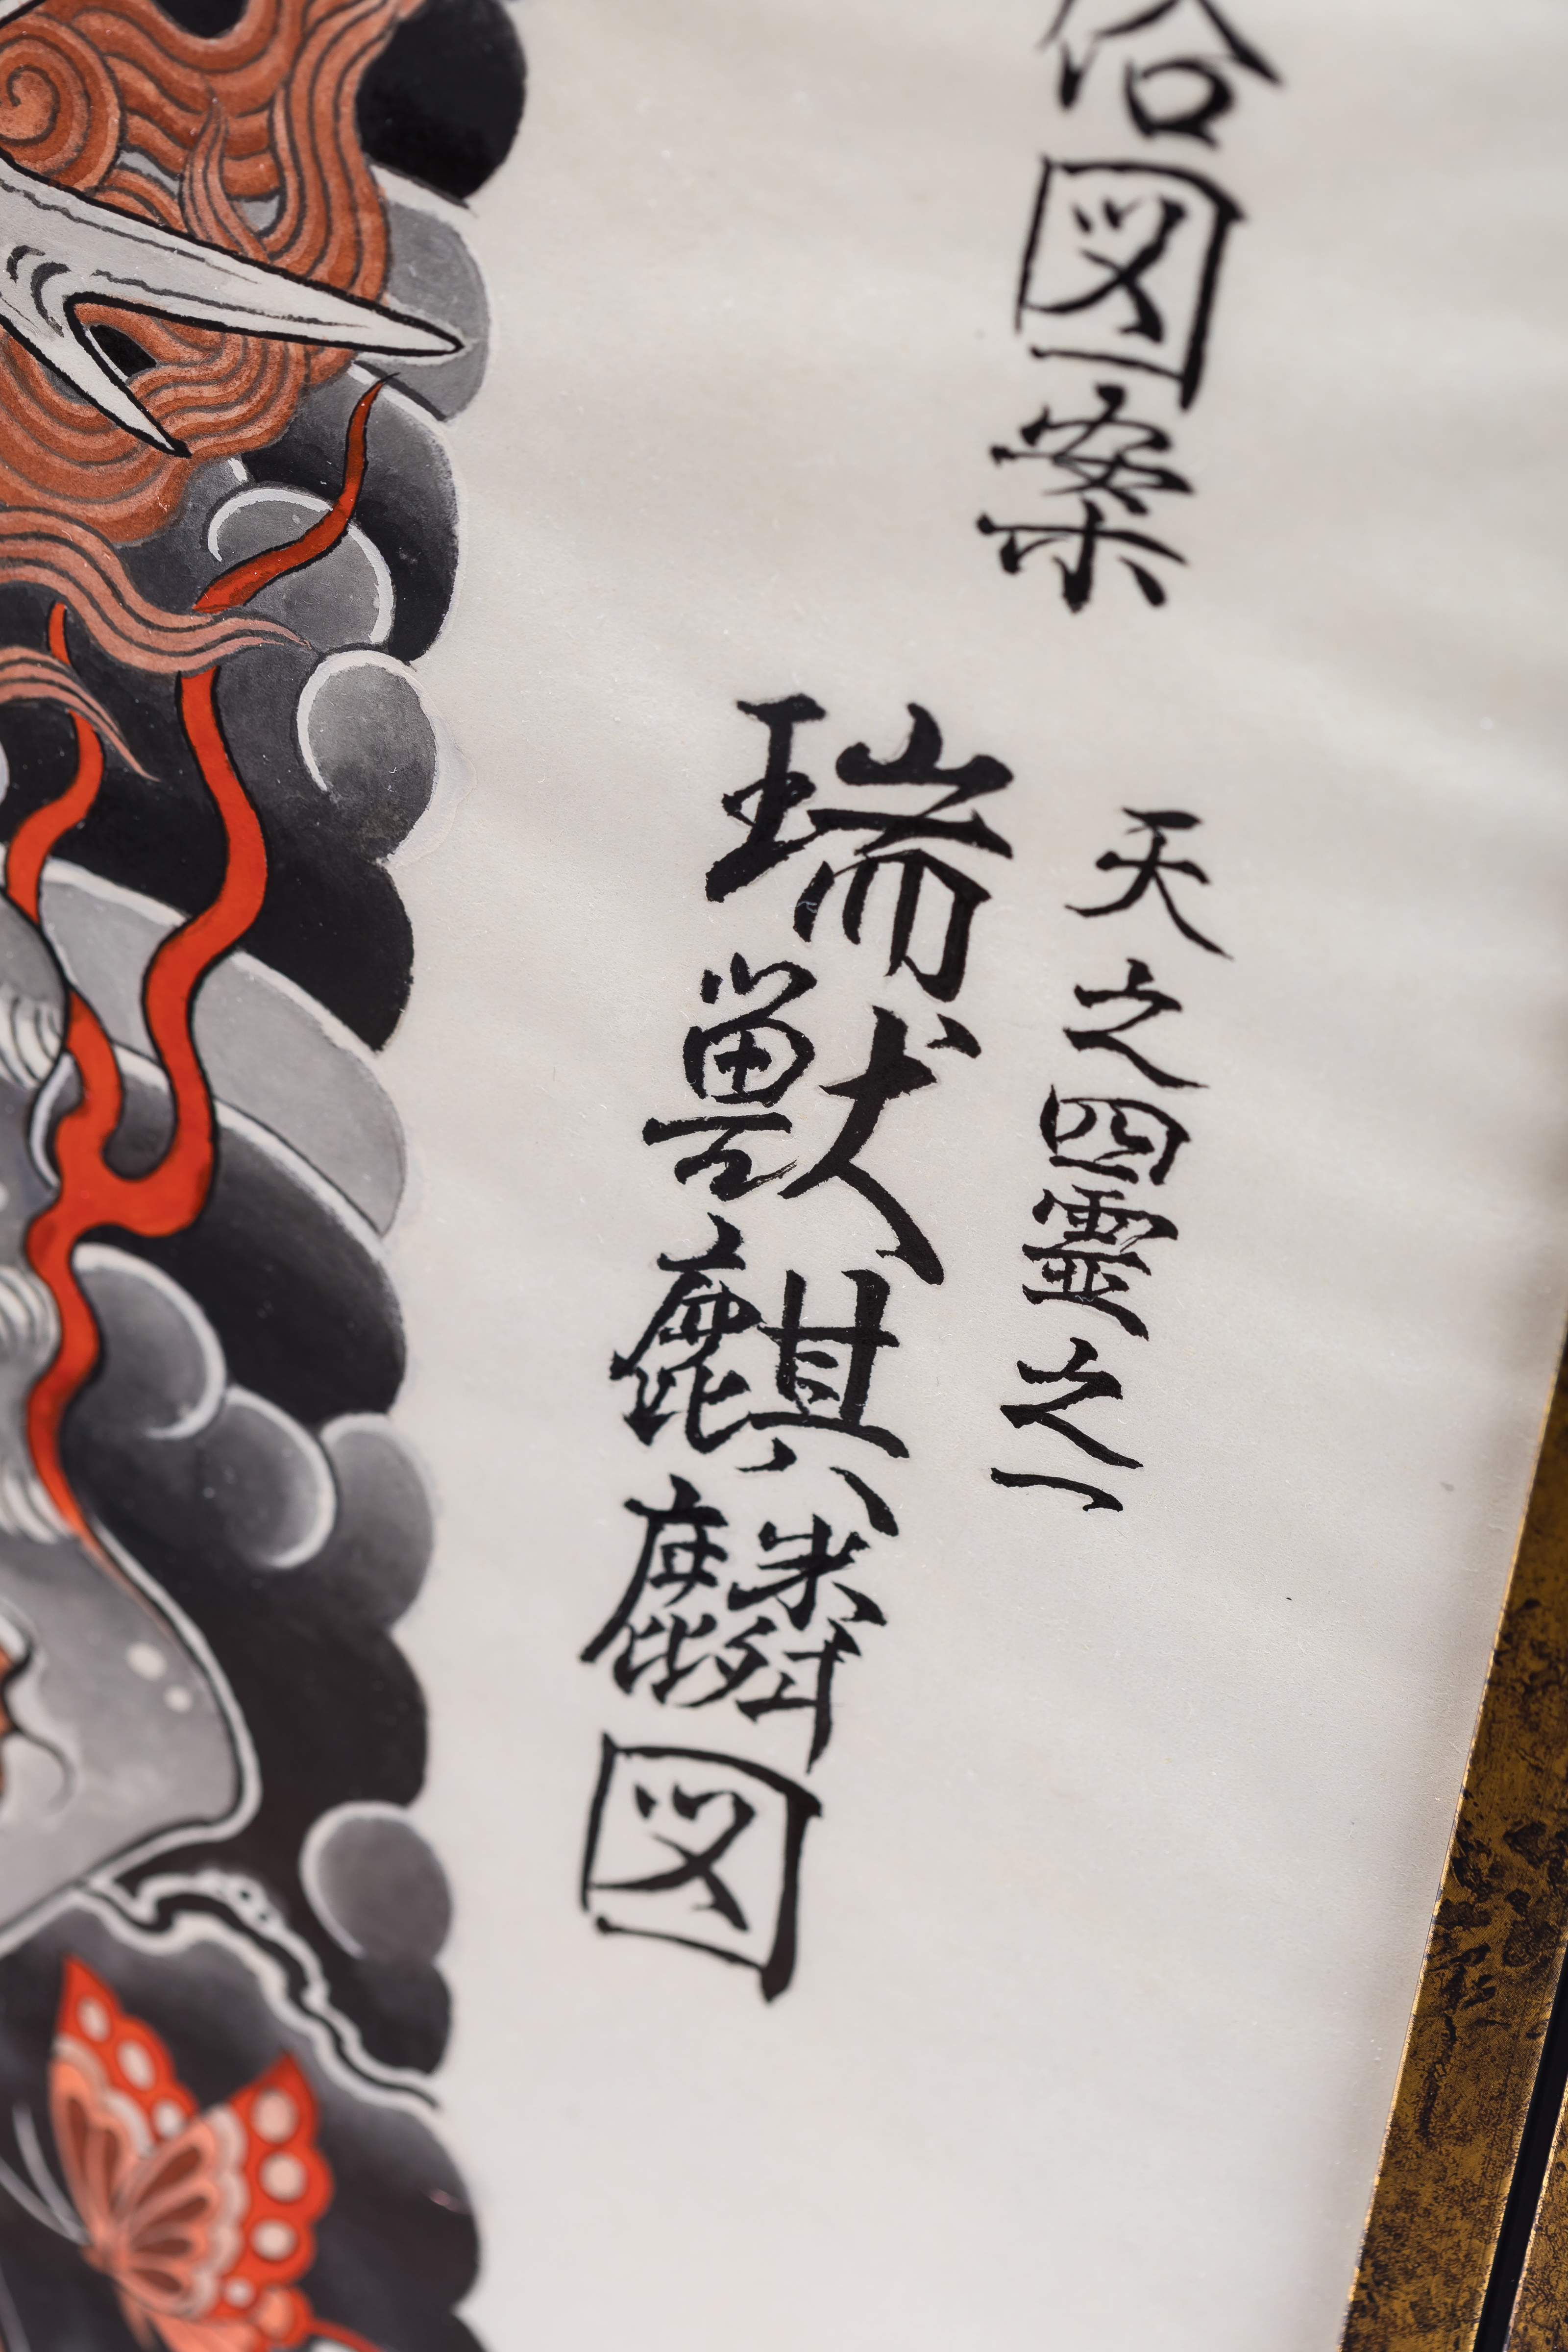 図案
天之四霊之一
瑞獣麒麟図